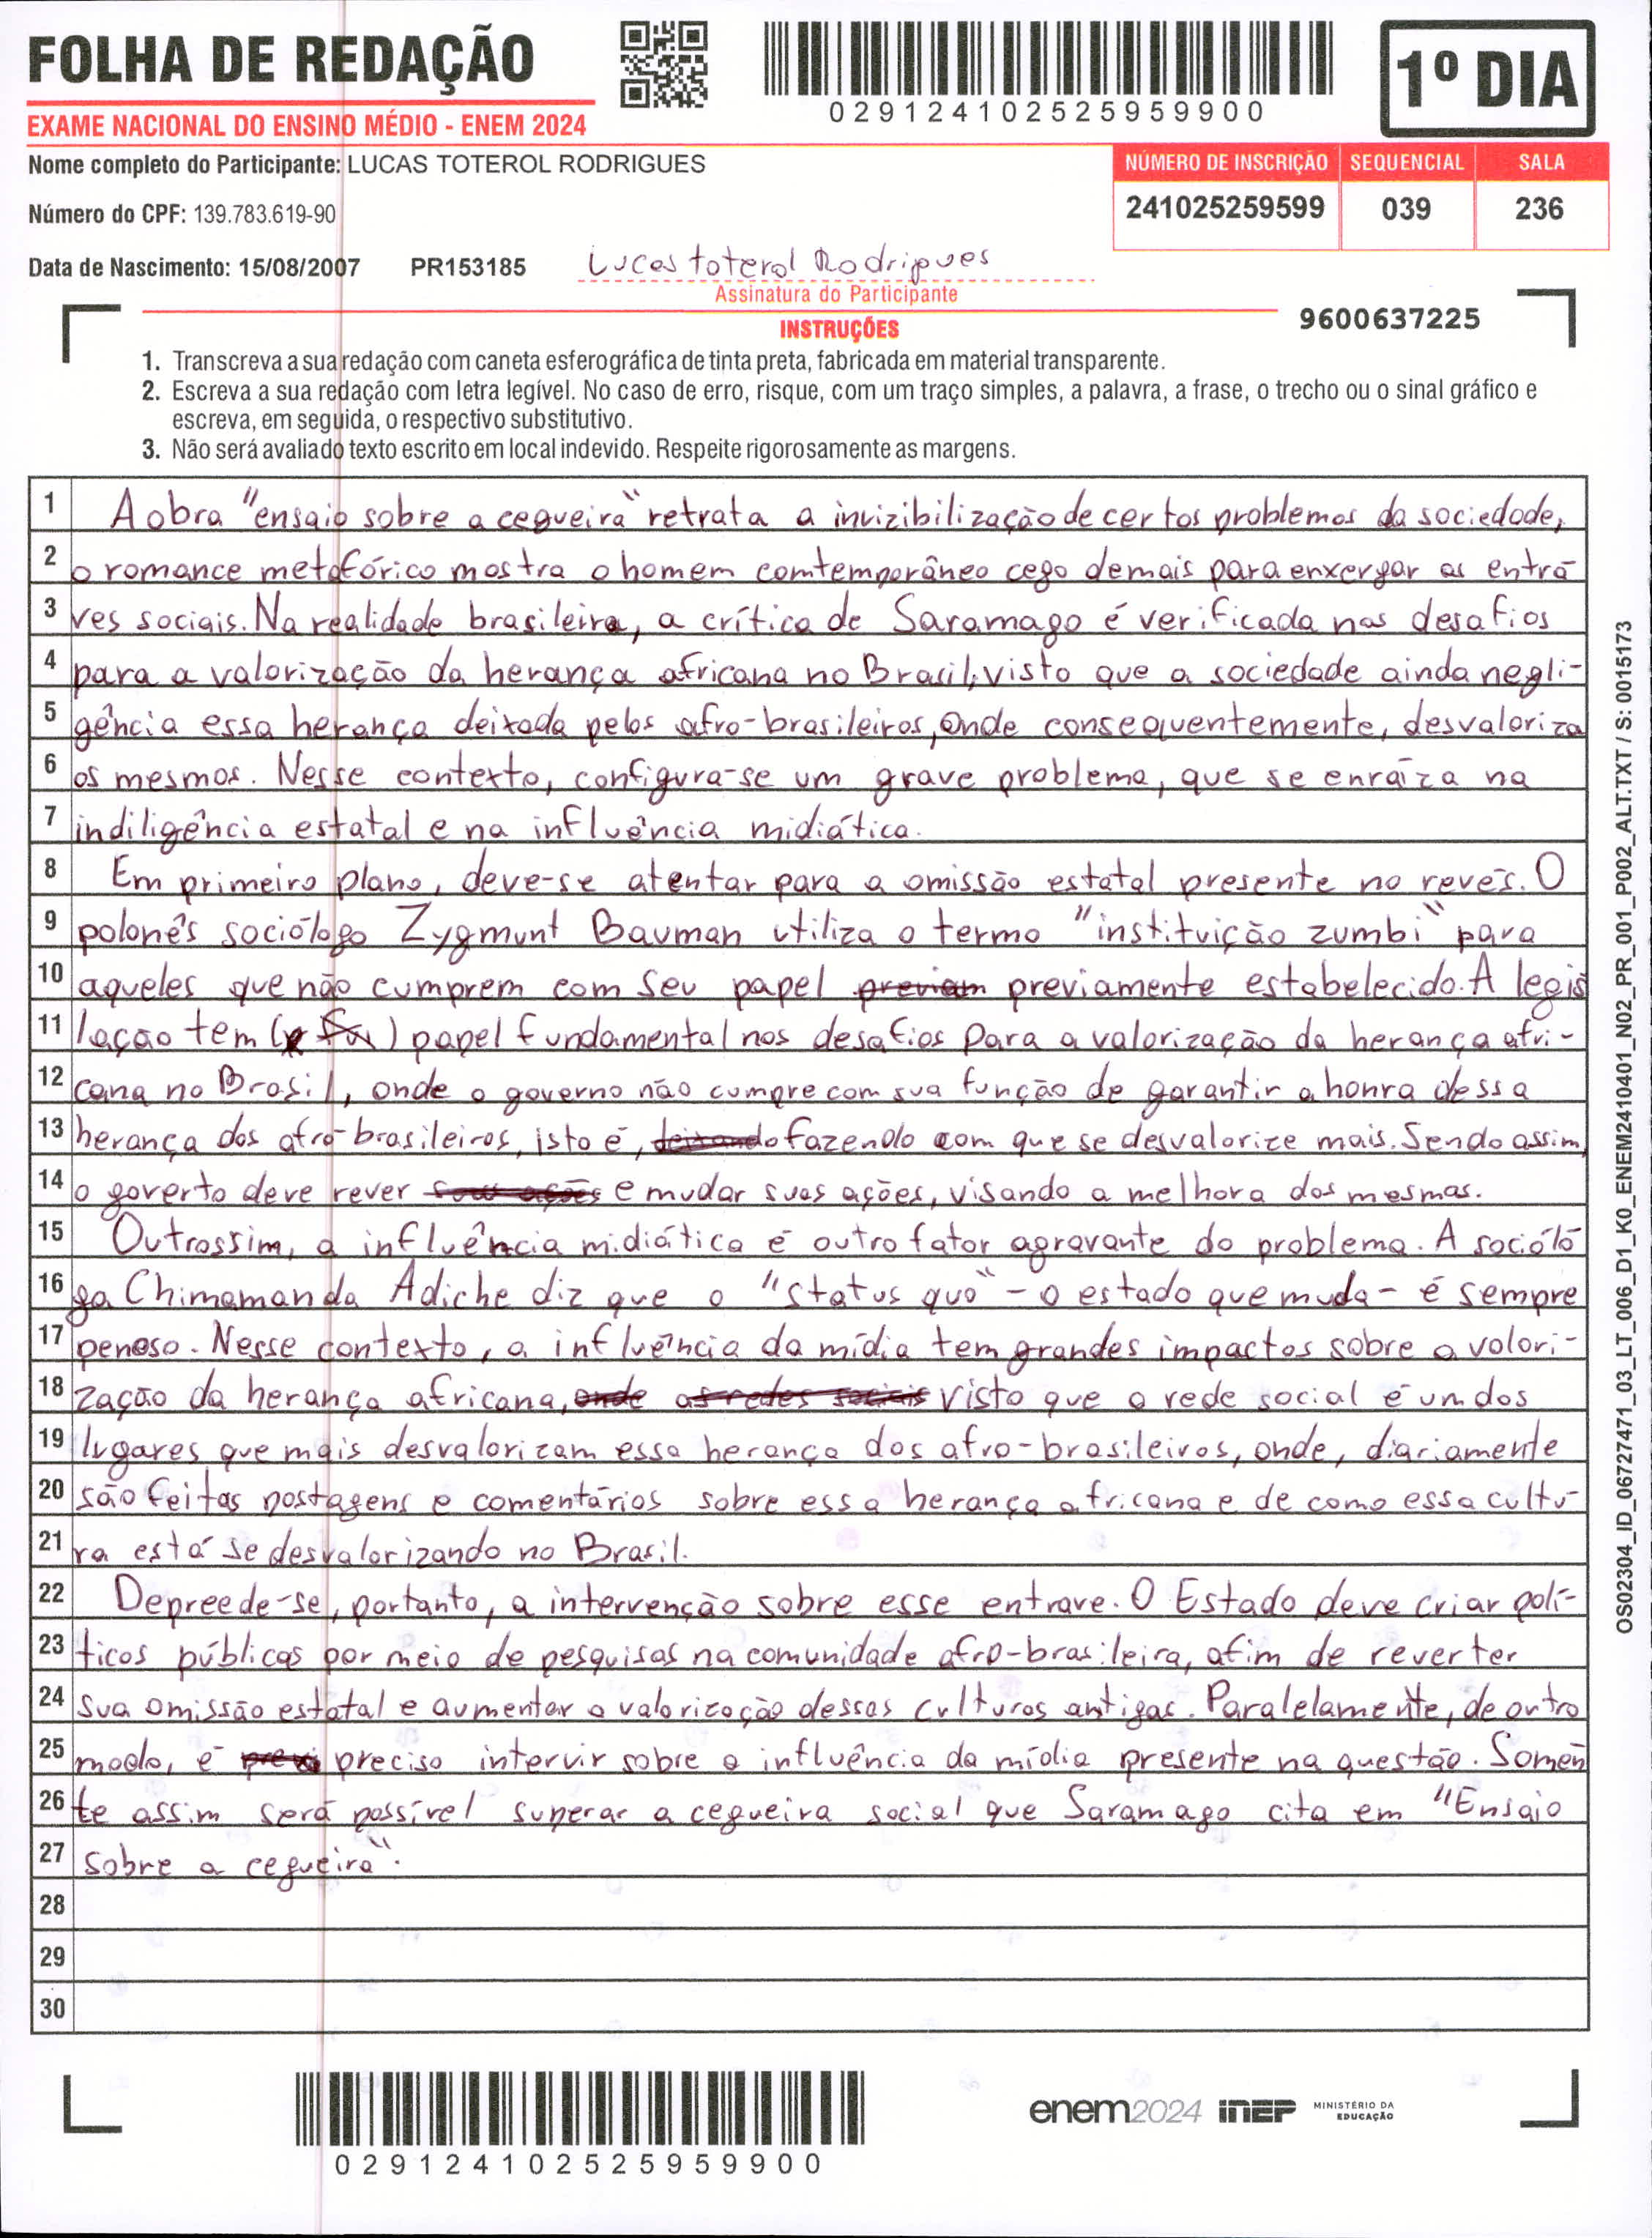 FOLHA DE REDAÇÃO
1º DIA
029124102525959900
EXAME NACIONAL DO ENSINO MÉDIO - ENEM 2024
Nome completo do Participante: LUCAS TOTEROL RODRIGUES
NÚMERO DE INSCRIÇÃO SEQUENCIAL SALA
Número do CPF: 139.783.619-90
241025259599 039 236
Data de Nascimento: 15/08/2007 PR153185 Lucas toterol Rodrigues
Assinatura do Participante
INSTRUÇÕES
9600637225
1. Transcreva a sua redação com caneta esferográfica de tinta preta, fabricada em material transparente.
2. Escreva a sua redação com letra legível. No caso de erro, risque, com um traço simples, a palavra, a frase, o trecho ou o sinal gráfico e
escreva, em seguida, o respectivo substitutivo.
3. Não será avaliado texto escrito em local indevido. Respeite rigorosamente as margens.
1 A obra "ensaio sobre a cegueira" retrata a invizibilização de certos problemas da sociedade,
2 o romance metafórico mostra o homem comtemporâneo cego demais para enxergar as entra
3 ves sociais. Na realidade brasileira, a crítica de Saramago é verificada nos desafios
4 para a valorização da herança africana no Brasil, visto que a sociedade ainda negli-
5 gência essa herança deixada pelos afro-brasileiros, onde consequentemente, desvaloriza
6 os mesmos. Nesse contexto, configura-se um grave problema, que se enraíza na
7 indiligência estatal e na influência midiática.
8 Em primeiro plano, deve-se atentar para a omissão estatal presente no revés. O
9 polonês sociólogo Zygmunt Bauman utiliza o termo "instituição zumbi" para
10 aqueles que não cumprem com seu papel previam previamente estabelecido. A legis
11 lação tem papel fundamental nos desafios para a valorização da herança afri-
12 cana no Brasil, onde o governo não cumpre com sua função de garantir a honra dessa
13 herança dos afro-brasileiros, isto é, deixando fazendo com que se desvalorize mais. Sendo assim,
14 o goverto deve rever suas ações e mudar suas ações, visando a melhora das mesmas.
15 Outrossim, a influência midiática é outro fator agravante do problema. A sociólo
16 ga Chimamanda Adiche diz que o "status quo" - o estado que muda - é sempre
17 penoso. Nesse contexto, a influência da mídia tem grandes impactos sobre a valori-
18 zação da herança africana, onde as redes sociais visto que a rede social é um dos
19 lugares que mais desvalorizam essa herança dos afro-brasileiros, onde, diariamente
20 são feitas postagens e comentários sobre essa herança africana e de como essa cultu-
21 ra está se desvalorizando no Brasil.
22 Depreede-se, portanto, a intervenção sobre esse entrave. O Estado deve criar polí-
23 ticas públicas por meio de pesquisas na comunidade afro-brasileira, afim de reverter
24 sua omissão estatal e aumentar a valorização dessas culturas antigas. Paralelamente, de outro
25 modo, é preciso intervir sobre a influência da mídia presente na questão. Somen
26 te assim será possível superar a cegueira social que Saramago cita em "Ensaio
27 sobre a cegueira".
28
29
30
OS02304_ID_06727471_03_LT_006_D1_K0_ENEM2410401_N02_PR_001_P002_ALT.TXT / S: 0015173
029124102525959900
enem2024 inep MINISTÉRIO DA
EDUCAÇÃO